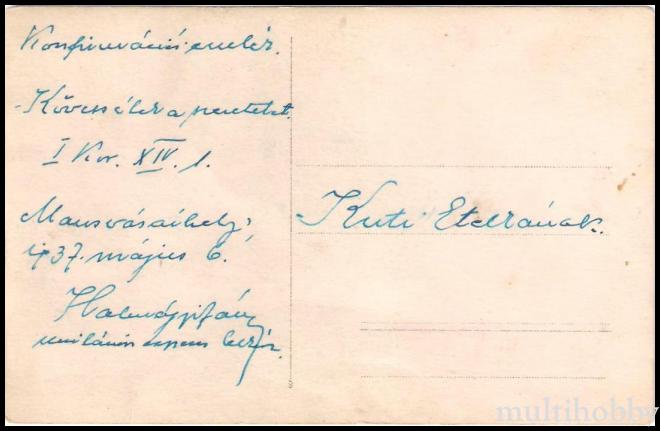 Konfirmációi emlék.
Kövessétek a szeretetet
I Kor. XIV. 1.
Marosvásárhely,
1937. május 6.
Halmágyi János
unitárius esperes lelkész.
Kuti Etelkának.
multihobby